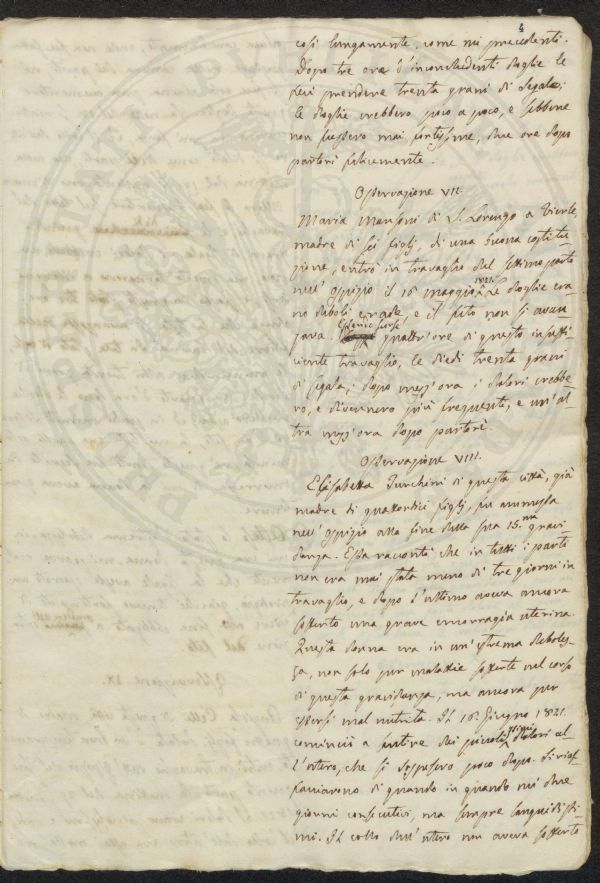 4
così lungamente, come nei precedenti.
Dopo tre ore d'inconcludenti doglie le
feci prendere trenta grani di Segala;
le doglie crebbero poco a poco, e sebbene
non fussero mai fortissime, due ore dopo
partorì felicemente.
Osservazione VII.
Maria Mansoni di S. Lorenzo a
madre di sei figlj, di una buona costitu-
zione, entrò in travaglio del settimo parto
nell'ospizio il 16 maggio 1821. Le doglie era-
no deboli e rade, e il feto non si avan-
zava. scorse quattr'ore di questo insuffi-
ciente travaglio, le diedi trenta grani
di segala; dopo mezz'ora i dolori crebbe-
ro, e divennero più frequenti, e un'al-
tra mezz'ora dopo partorì.
Osservazione VIII.
Elisabetta Turchini di questa città, già
madre di quattordici figlj, fu ammessa
nell'ospizio alla fine della sua 15.ma gravi-
danza. Essa raccontò che in tutti i parti
non era mai stata meno di tre giorni in
travaglio, e dopo l'ultimo aveva ancora
sofferto una grave emorragia uterina.
Questa donna era in un'estrema debolez-
za, non solo per malattie sofferte nel corso
di questa gravidanza, ma ancora per
essersi mal nutrita. Il 16 Giugno 1821.
cominciò a sentire dei piccolissimi dolori al-
l'utero, che si sospesero poco dopo. Si riaf-
facciarono di quando in quando nei due
giorni consecutivi, ma sempre languidissi-
mi. Il collo dell'utero non aveva sofferto